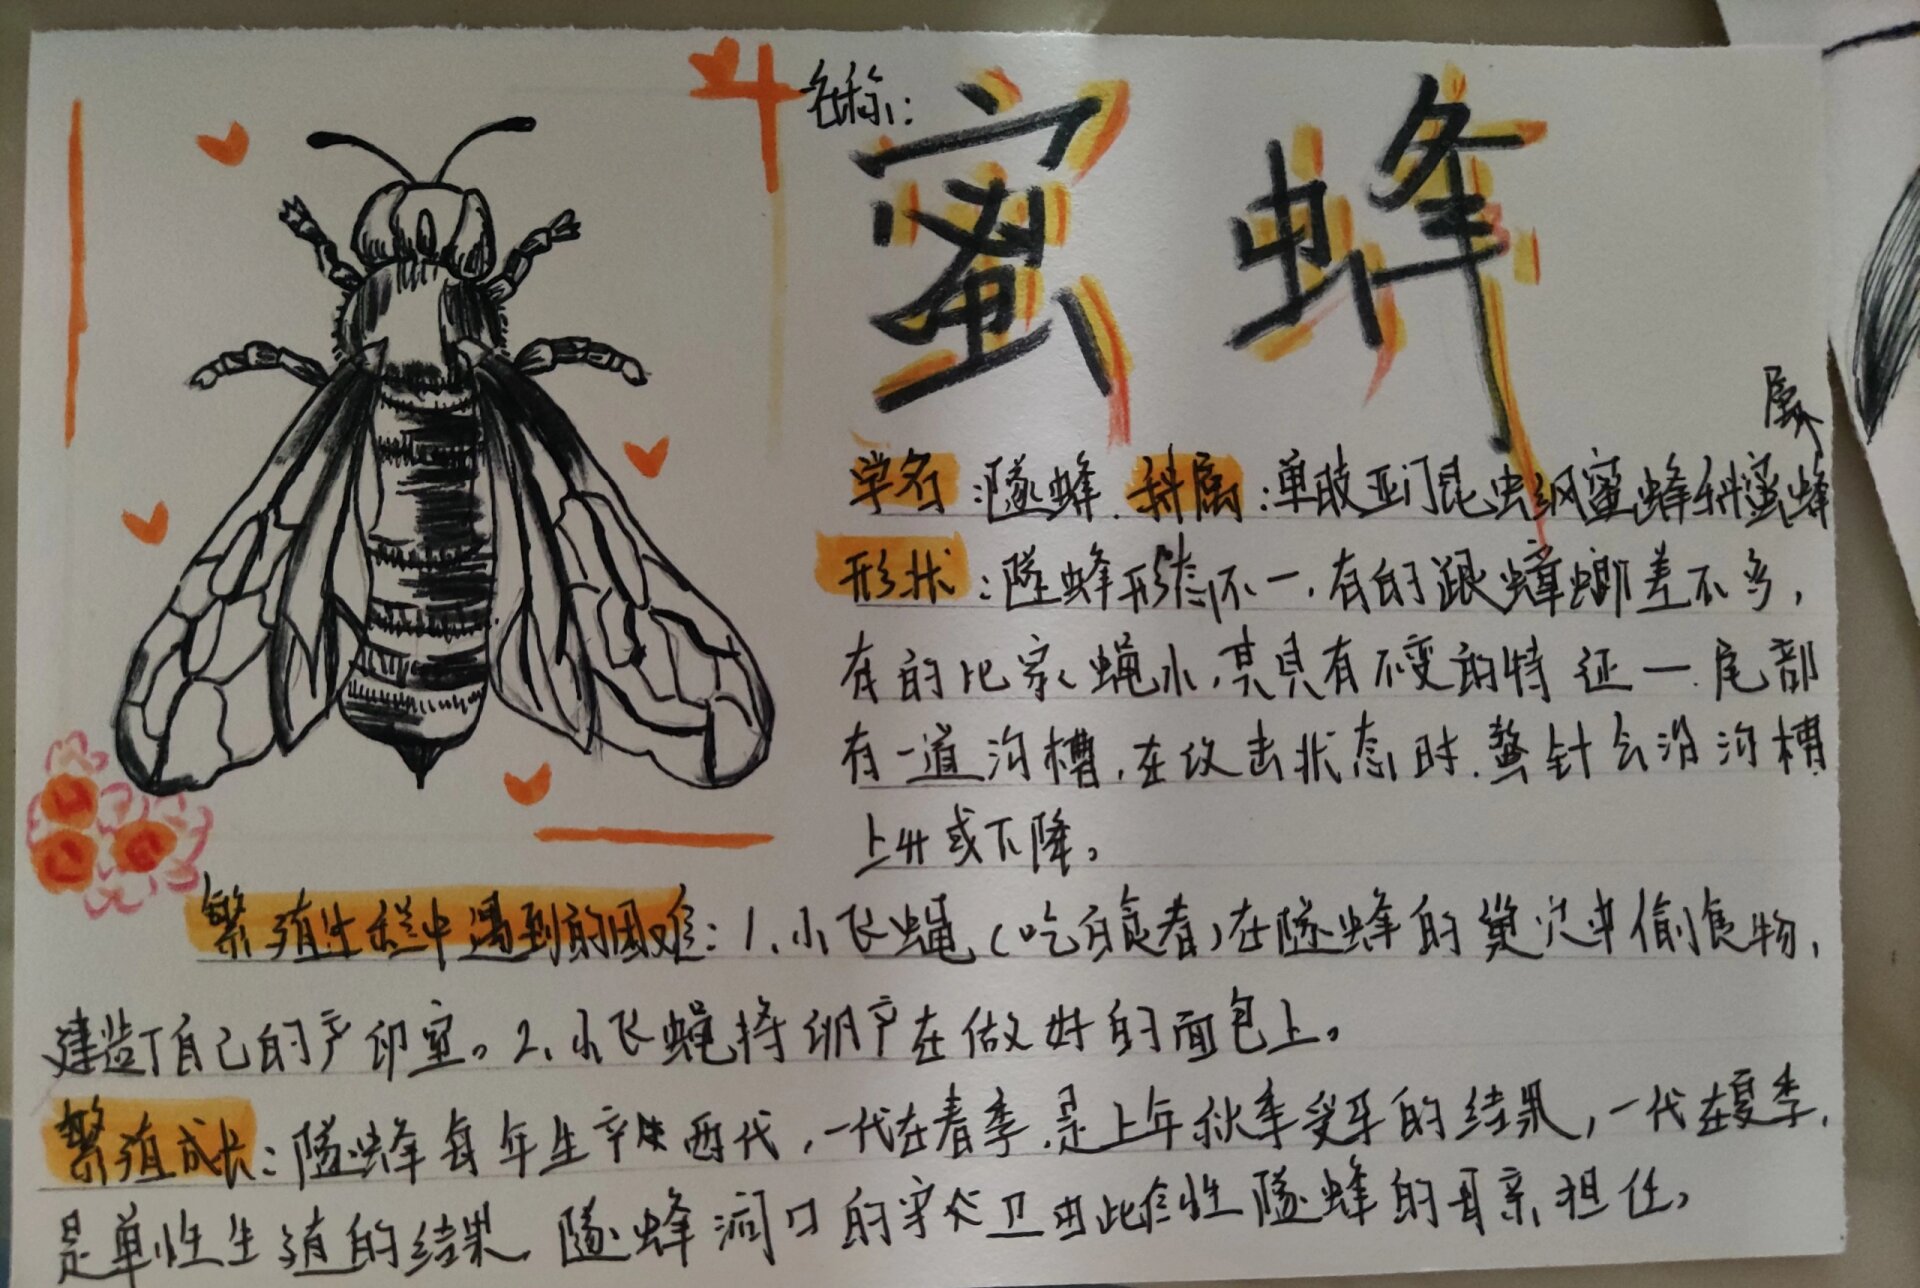 名称:
蜜蜂
属
学名:隧蜂.科属:单肢亚门昆虫纲蜜蜂科蜜蜂
形状:隧蜂形态不一,有的跟蟑螂差不多,
有的比家蝇小,其具有不变的特征一尾部
有一道沟槽.在攻击状态时.螯针会沿沟槽
上升或下降。
繁殖生存中遇到的困难:1.小飞蝇(吃白食者)在隧蜂的巢穴中偷食物,
建造了自己的产卵室。2.小飞蝇将卵产在做好的面包上。
繁殖成长:隧蜂每年生产两代,一代在春季.是上年秋季受孕的结果,一代在夏季,
是单性生殖的结果.隧蜂洞口的守卫由雌性隧蜂的母亲担任。